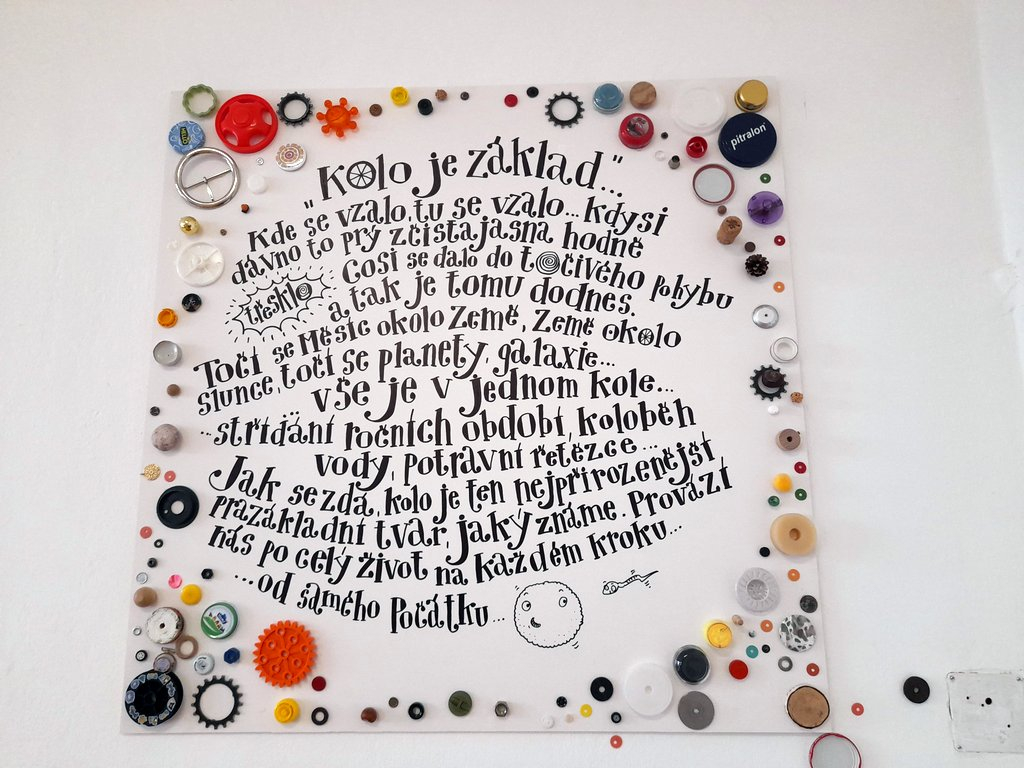 "Kolo je základ"...
Kde se vzalo, tu se vzalo... kdysi
dávno to prý zčistajasna hodně
třesklo
Cosi se dalo do točivého pohybu
a tak je tomu dodnes.
Točí se Měsíc okolo Země, Země okolo
slunce, točí se planety, galaxie...
... vše je v jednom kole...
...střídání ročních období, koloběh
vody, potravní řetězce...
Jak se zdá, kolo je ten nejpřirozenější
prazákladní tvar, jaký známe. Provází
nás po celý život na každém kroku...
...od samého Počátku...
pitralon